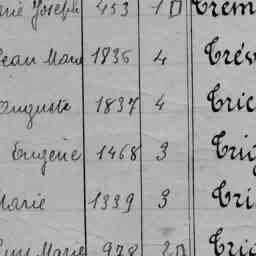 Joseph 453 1 D Trém
Jean Marie 1835 4 Trév
Auguste 1837 4 Tric
Eugène 1468 3 Trig
Marie 1339 3 Tri
Marie 978 2 D Trig